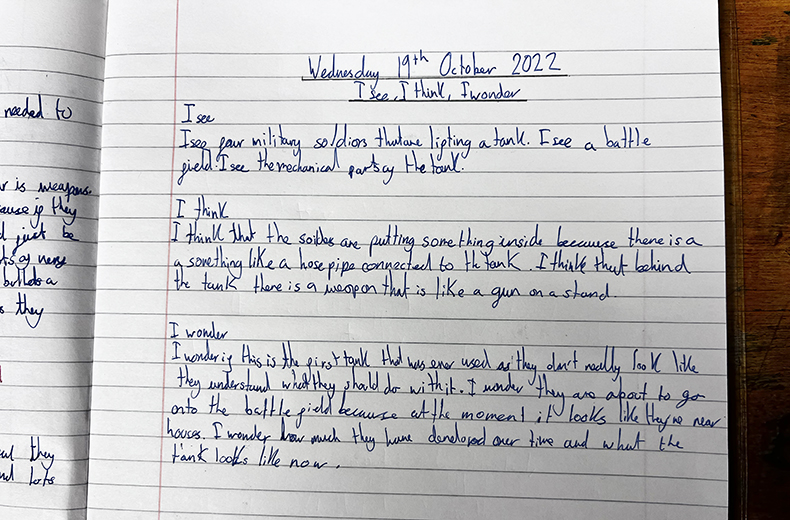 needed to
is weapons.
if they
just be
builds a
they
they
lots
Wednesday 19th October 2022
I see, I think, I wonder
I see
I see four military soldiors that are lifting a tank. I see a battle
field. I see the mechanical parts of the tank.
I think
I think that the are putting something inside because there is a
a something like a hose pipe connected to the tank. I think that behind
the tank there is a weapon that is like a gun on a stand.
I wonder
I wonder if this is the first tank that was ever used as they don't really look like
they understand what they should do with it. I wonder they are about to go
onto the battle field because at the moment it looks like they're near
houses. I wonder how much they have over time and what the
tank looks like now.